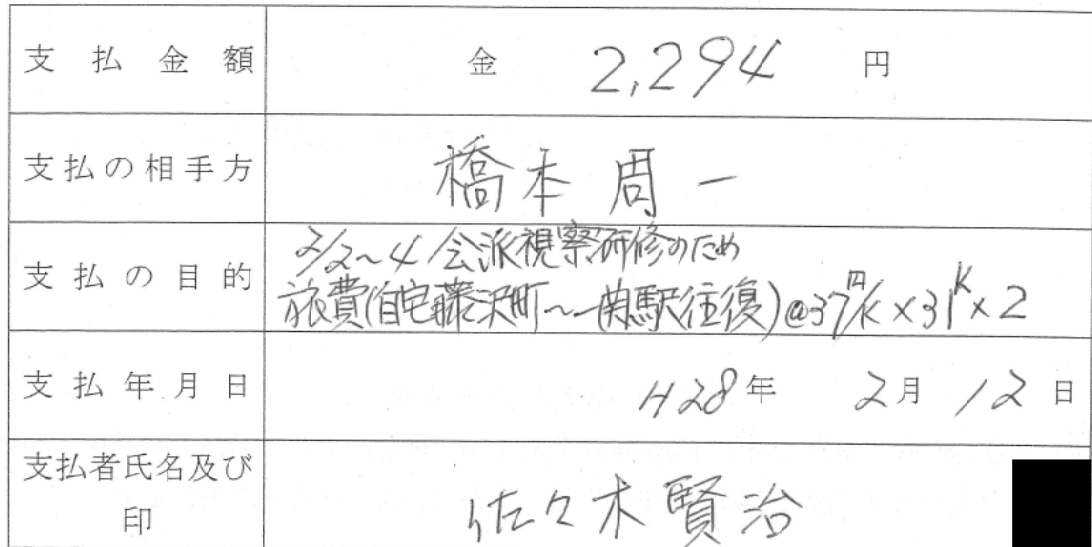 支払金額 金 2,294 円
支払の相手方 橋本周一
2/2~4 会派視察研修のため
支払の目的 旅費(自宅藤沢町~一関駅往復)@37円/K×31K×2
支払年月日 H28年 2月 12日
支払者氏名及び
印 佐々木賢治